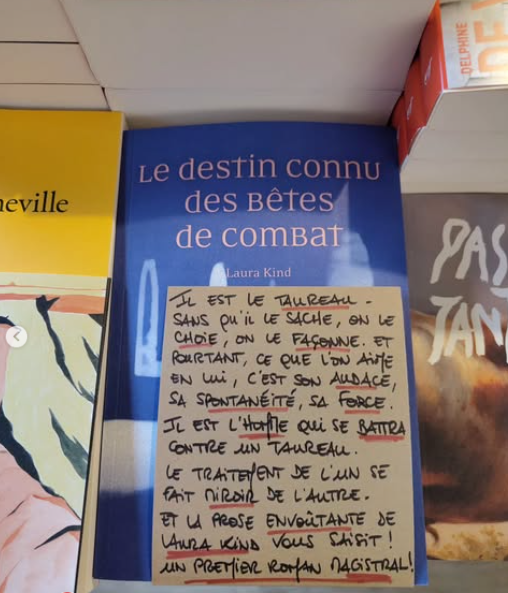 DELPHINE
DE
neville
Le destin connu
des Bêtes
de combat
Laura Kind
IL EST LE TAUREAU.
SANS QU'IL LE SACHE, ON LE
CHOIE, ON LE FAÇONNE. ET
POURTANT, CE QUE L'ON AIME
EN LUI, C'EST SON AUDACE,
SA SPONTANÉITÉ, SA FORCE.
IL EST L'HOMME QUI SE BATTRA
CONTRE UN TAUREAU.
LE TRAITEMENT DE L'UN SE
FAIT MIROIR DE L'AUTRE.
ET LA PROSE ENVOÛTANTE DE
LAURA KIND VOUS SAISIT !
UN PREMIER ROMAN MAGISTRAL !
PAS
TAN